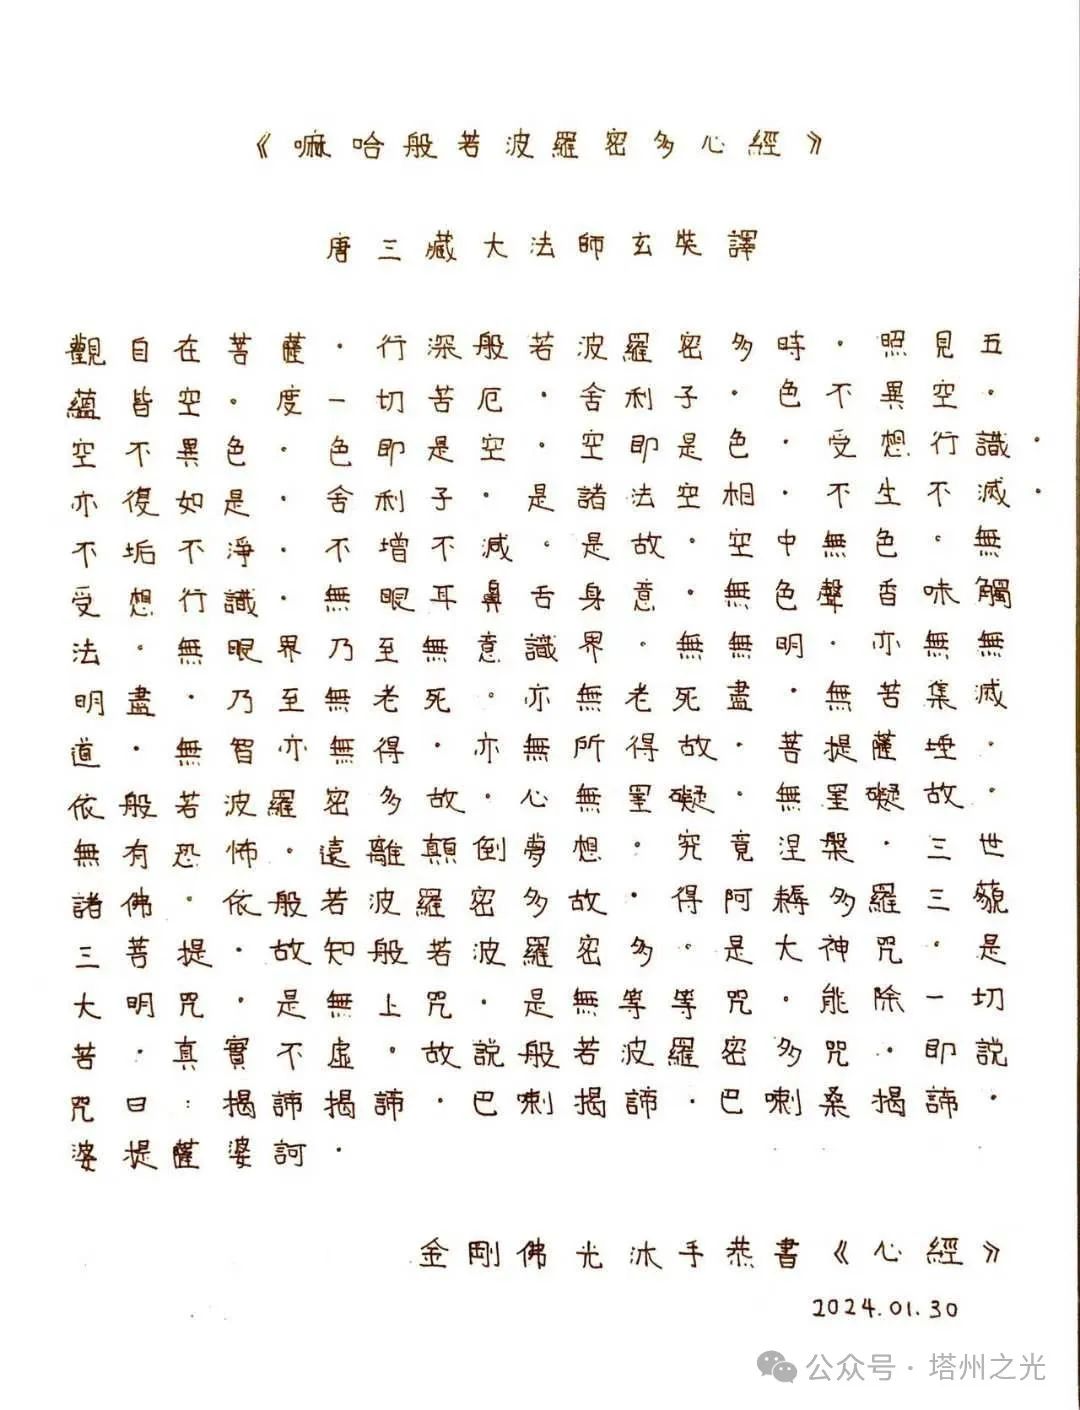 《嘛哈般若波羅密多心經》
唐三藏大法師玄奘譯
觀自在菩薩．行深般若波羅密多時。照見五
蘊皆空。度一切苦厄．舍利子．色不異空．
空不異色．色即是空．空即是色．受想行識．
亦復如是．舍利子．是諸法空相．不生不滅．
不垢不淨．不增不減。是故．空中無色。無
受想行識．無眼耳鼻舌身意．無色聲香味觸
法．無眼界乃至無意識界．無無明．亦無無
明盡．乃至無老死。亦無老死盡．無苦集滅
道．無智亦無得．亦無所得故．菩提薩埵．
依般若波羅密多故．心無罣礙．無罣礙故．
無有恐怖．遠離顛倒夢想．究竟涅槃．三世
諸佛．依般若波羅密多故．得阿耨多羅三藐
三菩提．故知般若波羅密多。是大神咒．是
大明咒．是無上咒．是無等等咒．能除一切
苦．真實不虛．故說般若波羅密多咒．即說
咒曰：揭諦揭諦．巴喇揭諦．巴喇桑揭諦．
婆提薩婆訶．
金剛佛光沐手恭書《心經》
2024.01.30
公众号·塔州之光